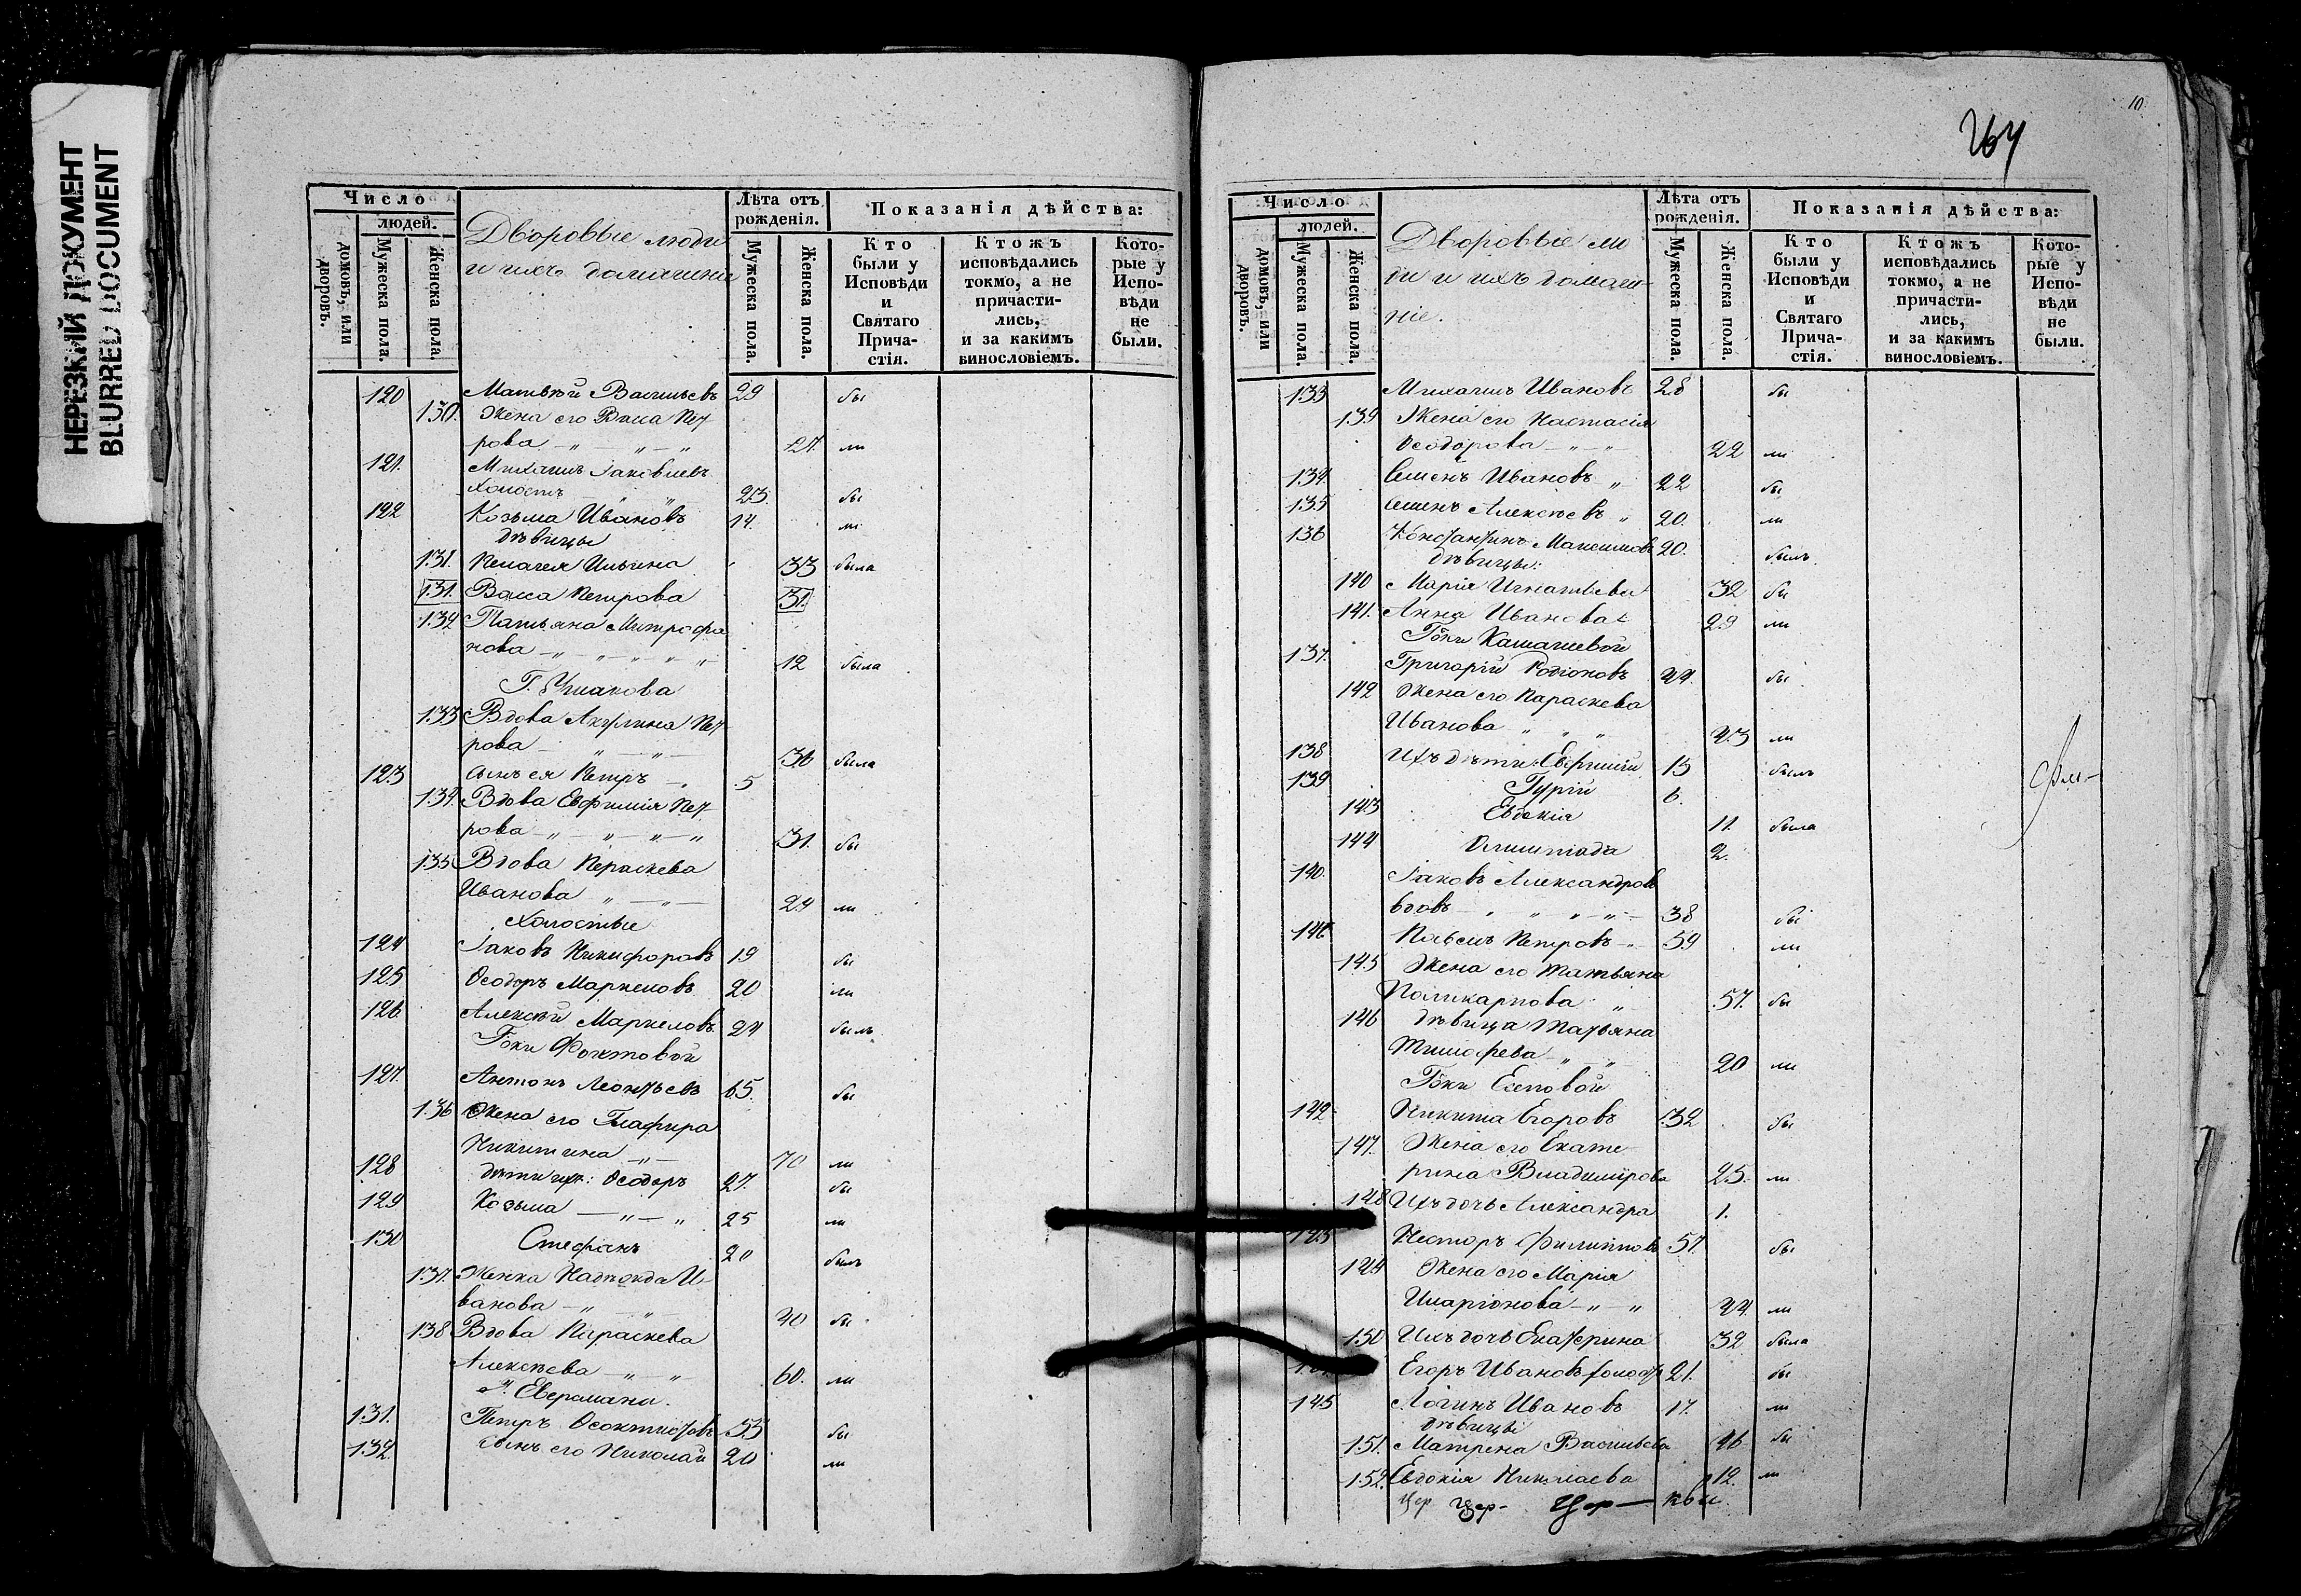 НЕРЕЗКИЙ ДОКУМЕНТ
BLURRED DOCUMENT
Число
людей.
домовъ, или дворовъ.
Мужеска пола.
Женска пола.
Дворовые люди
и ихъ домашние
Лѣта отъ рожденія.
Мужеска пола.
Женска пола.
Показанія дѣйства:
Кто были у Исповѣди и Святаго Прича-стія.
Ктожъ исповѣдались токмо, а не причасти-лись, и за какимъ винословіемъ.
Кото-рые у Испо-вѣди не были.
120 Матвѣй Васильевъ 29 бы
130. Жена его Васса Пет
рова 27. ли
121. Михаилъ Іаковлевъ
холостъ 23. бы
122 Козьма Ивановъ 14. ли
дѣвицы
131. Пелагея Ильина 33 была
131. Васса Петрова 31.
132 Татьяна Митрофа
нова 12 была
Г. Ушакова
133 Вдова Акулина Пет
рова 36 была
123 сынъ ея Петръ 5
134. Вдова Евфимія Пет
рова 31. бы
135 Вдова Пераскева
Иванова 24 ли
Холостые
124 Іаковъ Никифоровъ 19 бы
125 Ѳеодоръ Маркеловъ 20 ли
126 Алексѣй Маркеловъ 24 былъ
Гжи
127. Антонъ Леонтьевъ 65. бы
136 Жена его Глафира
Никитина 70 ли
128 дѣти ихъ: Ѳеодоръ 27. бы
129 Козьма 25 ли
130 Стефанъ 20 былъ
137. Женка Надежда И
ванова 40 бы
138 Вдова Параскева
Алексѣева 60. ли
Г. Еверсмана.
131. Петръ 53 бы
132. сынъ его Николай 20 ли
10.
264
Число
людей.
домовъ, или дворовъ.
Мужеска пола.
Женска пола.
Дворовые лю
ди и ихъ домаш-
ніе.
Лѣта отъ рожденія.
Мужеска пола.
Женска пола.
Показанія дѣйства:
Кто были у Исповѣди и Святаго Прича-стія.
Ктожъ исповѣдались токмо, а не причасти-лись, и за какимъ винословіемъ.
Кото-рые у Испо-вѣди не были.
133 Михаилъ Ивановъ 28 бы
139 Жена его Настасія
Ѳеодорова 22 ли
134. Семенъ Ивановъ 22 бы
135 Семенъ Алексѣевъ 20. ли
136 Константинъ Максимовъ 20. былъ
дѣвицы:
140 Марія Игнатьева 32 бы
141. Анна Иванова 29 ли
Гжи
137. Григорій Родіоновъ 44. бы
142 Жена его Параскева
Иванова 43 ли
138 Ихъ дѣти: Евфимій 13 былъ
139 Гурій 6.
143 Евдокія 11. была
144 Олимпіада 2.
140. Іаковъ Александровъ
вдовъ 38 бы
141. Павелъ Петровъ 59 ли
145 Жена его Татьяна
Поликарпова 57. бы
146 дѣвица Татьяна
Тимофеева 20 ли
Гжи Есиповой
142 Никита Егоровъ 32 бы
147. Жена его Екате
рина Владимірова 25. ли
148 Ихъ дочь Александра 1.
143 Несторъ Филиповъ 57. бы
149 Жена его Марія
Иларіонова 44. ли
150 Ихъ дочь Екатерина 32 была
Егоръ Ивановъ холостъ 21. бы
145 Логинъ Ивановъ 17. ли
дѣвицы
151. Матрена Васильева 46 бы
152. Евдокія Николаева 12. ли
Цер Цер- Цер— кви